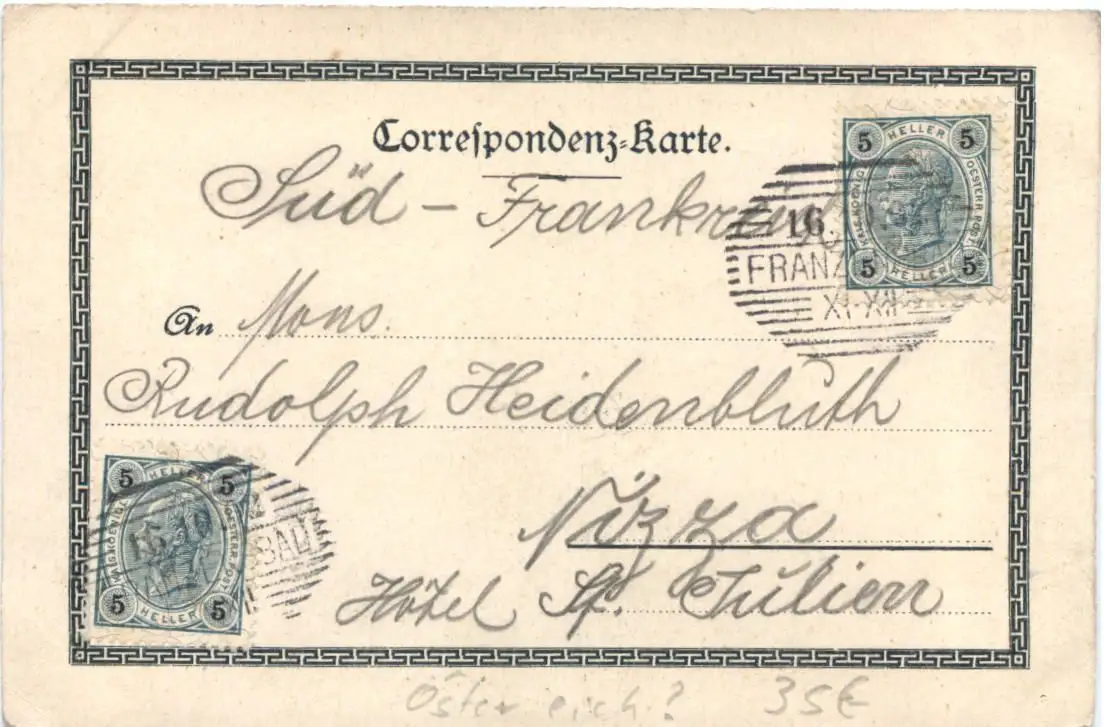 Correspondenz-Karte.
Süd - Frankreich
An Mons.
Rudolph Heidenbluth
Nizza
Hôtel St. Julien
5 HELLER 5
KAIS. KOENIG. OESTERR. POST.
5 HELLER 5
16
FRANZ
XI-XII
5 HELLER 5
KAIS. KOENIG. OESTERR. POST.
5 HELLER 5
16
BAD
Österreich? 35€